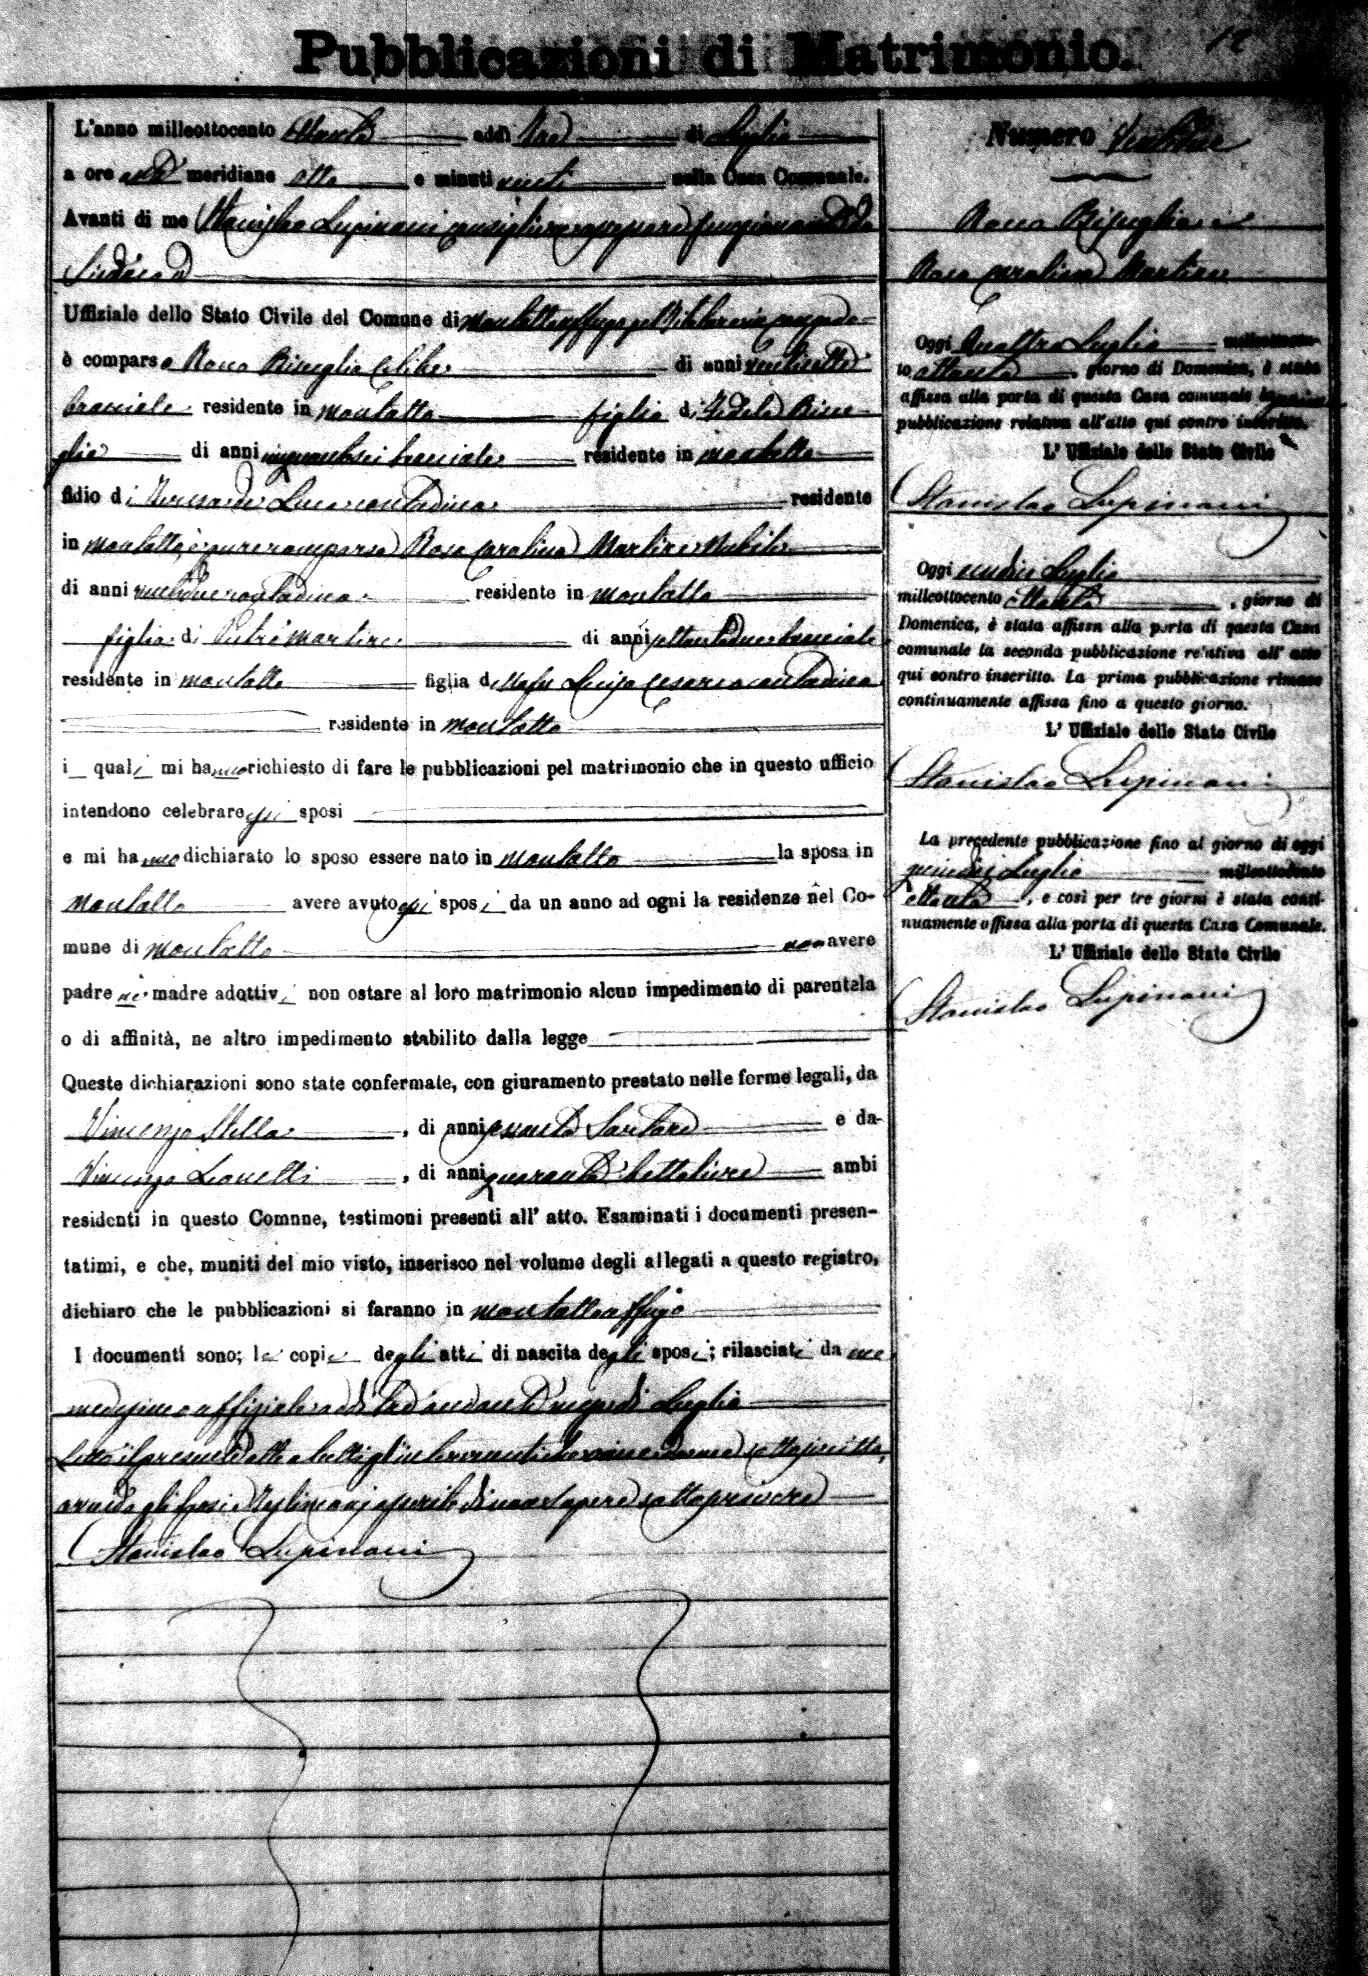 Pubblicazioni di Matrimonio.
12
L'anno milleottocento ottanta addì due di Luglio
a ore anti meridiane otto e minuti venti nella Casa Comunale.
Avanti di me Stanislao Lupinacci consigliere funzionante da
Sindaco
Uffiziale dello Stato Civile del Comune di Montalto Uffugo
è comparso Rocco Bisceglia celibe di anni ventisette
bracciale residente in Montalto figlio di Fedele Bisce
glia di anni cinquantasei bracciale residente in Montalto
e di Teresa de Luca contadina residente
in Montalto, è pure comparsa Rosa Carolina Martire nubile
di anni ventidue contadina residente in Montalto
figlia di Pietro Martire di anni settantadue bracciale
residente in Montalto figlia di Luigia Cesario contadina
residente in Montalto
i quali mi hanno richiesto di fare le pubblicazioni pel matrimonio che in questo ufficio
intendono celebrare gli sposi
e mi hanno dichiarato lo sposo essere nato in Montalto la sposa in
Montalto avere avuto gli sposi da un anno ad ogni la residenze nel Co-
mune di Montalto non avere
padre nè madre adottivi non ostare al loro matrimonio alcun impedimento di parentela
o di affinità, ne altro impedimento stabilito dalla legge
Queste dichiarazioni sono state confermate, con giuramento prestato nelle forme legali, da
Vincenzo Stella, di anni trenta Sartore e da
Vincenzo Leonetti, di anni quaranta bettoliere ambi
residenti in questo Comnne, testimoni presenti all' atto. Esaminati i documenti presen-
tatimi, e che, muniti del mio visto, inserisco nel volume degli allegati a questo registro,
dichiaro che le pubblicazioni si faranno in Montalto Uffugo
I documenti sono; le copie degli atti di nascita degli sposi; rilasciati da me
medesimo uffiziale addì Luglio
Letto il presente atto a tutti gl'intervenuti
avendo gli sposi e testimoni asserito di non sapere sottoscrivere
Stanislao Lupinacci
Numero Ventidue
Rocco Bisceglia e
Rosa Carolina Martire
Oggi quattro Luglio milleottocen-
to ottanta, giorno di Domenica, è stata
affissa alla porta di questa Casa comunale la prima
pubblicazione relativa all'atto qui contro inscritto.
L' Uffiziale dello Stato Civile
Stanislao Lupinacci
Oggi undici Luglio
milleottocento ottanta, giorno di
Domenica, è stata affissa alla porta di questa Casa
comunale la seconda pubblicazione re'ativa all' atto
qui contro inscritto. La prima pubblicazione rimase
continuamente affissa fino a questo giorno.
L' Uffiziale dello Stato Civile
Stanislao Lupinacci
La precedente pubblicazione fino al giorno di oggi
quindici Luglio milleottocento
ottanta, e così per tre giorni è stata conti-
nuamente offissa alla porta di questa Casa Comunale.
L' Uffiziale dello Stato Civile
Stanislao Lupinacci